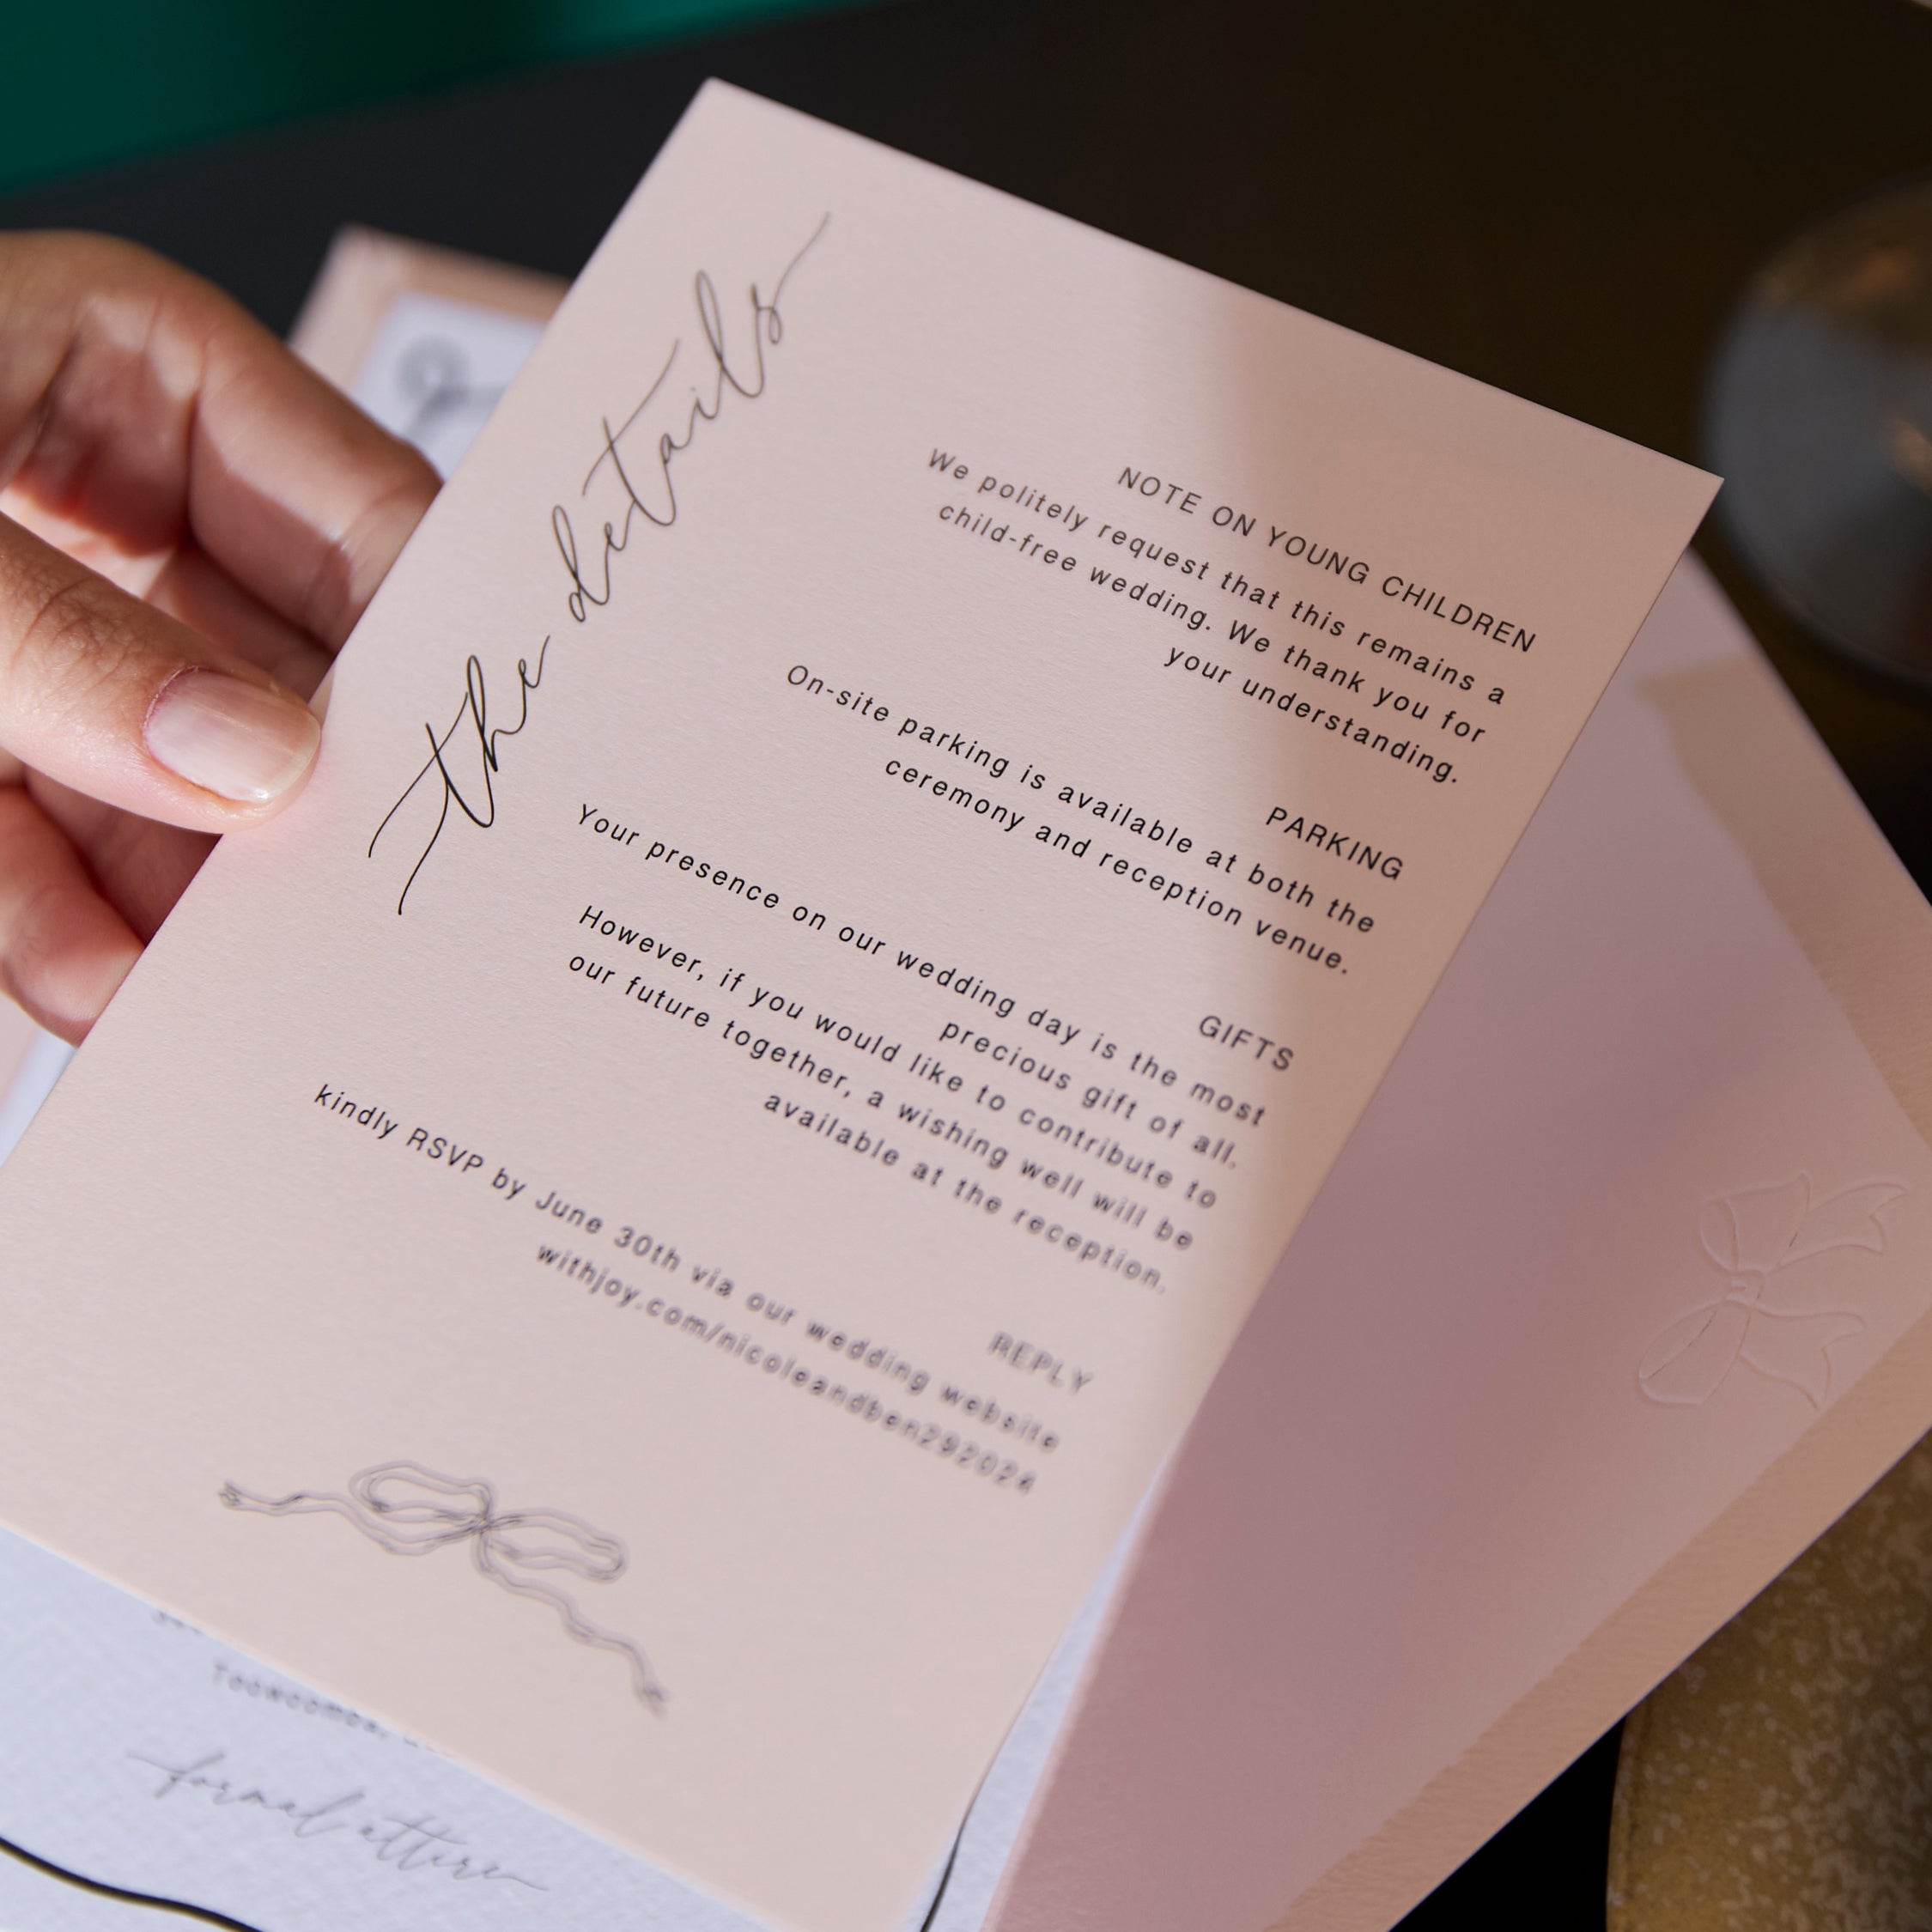 the details
NOTE ON YOUNG CHILDREN
We politely request that this remains a
child-free wedding. We thank you for
your understanding.
PARKING
On-site parking is available at both the
ceremony and reception venue.
GIFTS
Your presence on our wedding day is the most
precious gift of all.
However, if you would like to contribute to
our future together, a wishing well will be
available at the reception.
REPLY
kindly RSVP by June 30th via our wedding website
withjoy.com/nicoleandben292024
Toowoomba,
formal attire